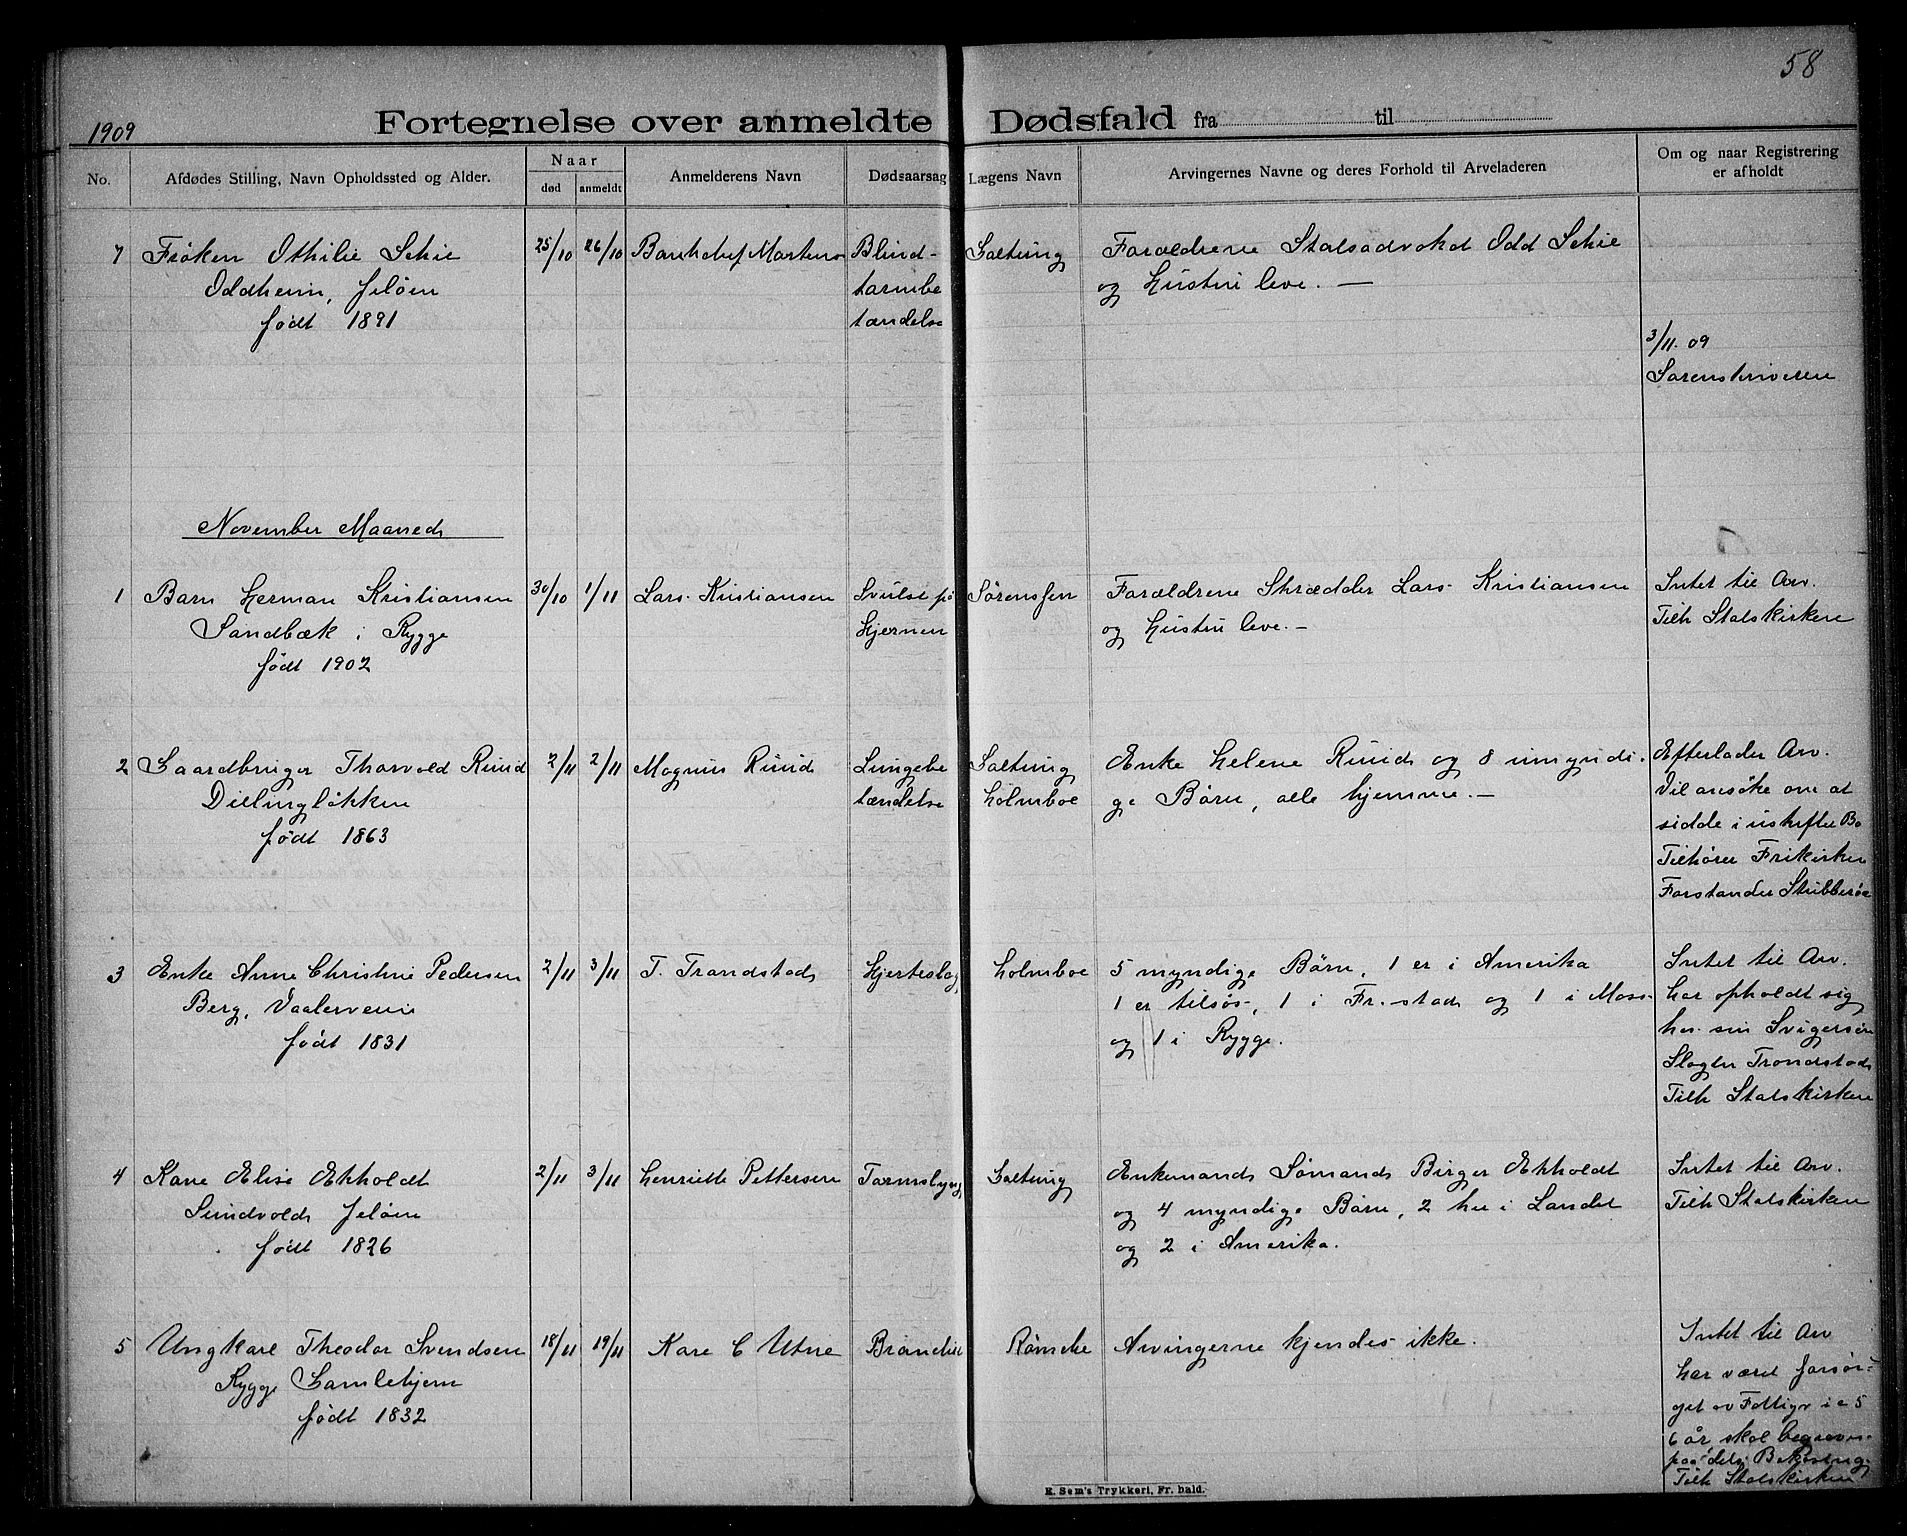 58
1909
Fortegnelse over anmeldte Dødsfald fra til
No.
Afdødes Stilling, Navn Opholdssted og Alder.
Naar
død
anmeldt
Anmelderens Navn
Dødsaarsag
Lægens Navn
Arvingernes Navne og deres Forhold til Arveladeren
Om og naar Registrering
er afholdt
7
Frøken Othilie Schie
Oddheim, Jeløen
født 1891
25/10
26/10
Bankchef Martens
Blind-
tarmbe
tændelse
Galtung
Forældrene Statsadvokat Odd Schie
og Hustru leve. —
3/11. 09
Sorenskriveren
November Maaned
1
Barn Herman Kristiansen
Sandbæk i Rygge
født 1902
30/10
1/11
Lars Kristiansen
Svulst på
Hjernen
Sørenssen
Forældrene Skrædder Lars Kristiansen
og Hustru leve. —
Intet til Arv.
Tilh Statskirken
2
Gaardbruger Thorvald Ruud
Dillingløkken
født 1863
2/11
2/11
Magnus Ruud
Lungebe
tændelse
Galtung
Holmboe
Enke Helene Ruud og 8 umyndi-
ge Børn, alle hjemme. —
Efterlader Arv.
Vil ansøke om at
sidde i uskiftet Bo
Tilhører Frikirken
Forstander Stubberøe
3
Enke Anne Christine Pedersen
Berg, Vaalerveien
født 1831
2/11
3/11
T. Trandstad
Hjerteslag
Holmboe
5 myndige Børn, 1 er i Amerika
1 er tilsøs, 1 i Fr.stad og 1 i Moss
og 1 i Rygge.
Intet til Arv.
har opholdt sig
hos sin Svigersøn
Slagter Trondstad
Tilh Statskirken
4
Kone Elise Ekholdt
Sundvold Jeløen
født 1826
2/11
3/11
Henriette Pettersen
Tarmslyng
Galtung
Enkemand Sømand Birger Ekholdt
og 4 myndige Børn, 2 her i Landet
og 2 i Amerika.
Intet til Arv.
Tilh Statskirken
5
Ungkarl Theodor Svendsen
Rygge Gamlehjem
født 1832
18/11
19/11
Kare C Utne
Bronchit
Rømcke
Arvingerne kjendes ikke.
Intet til Arv
har været forsør-
get av Fattigv i ca 5
6 år skal begraves
paa dets Bekostning
Tilh Statskirken
E. Sem's Trykkeri, Fr. hald.